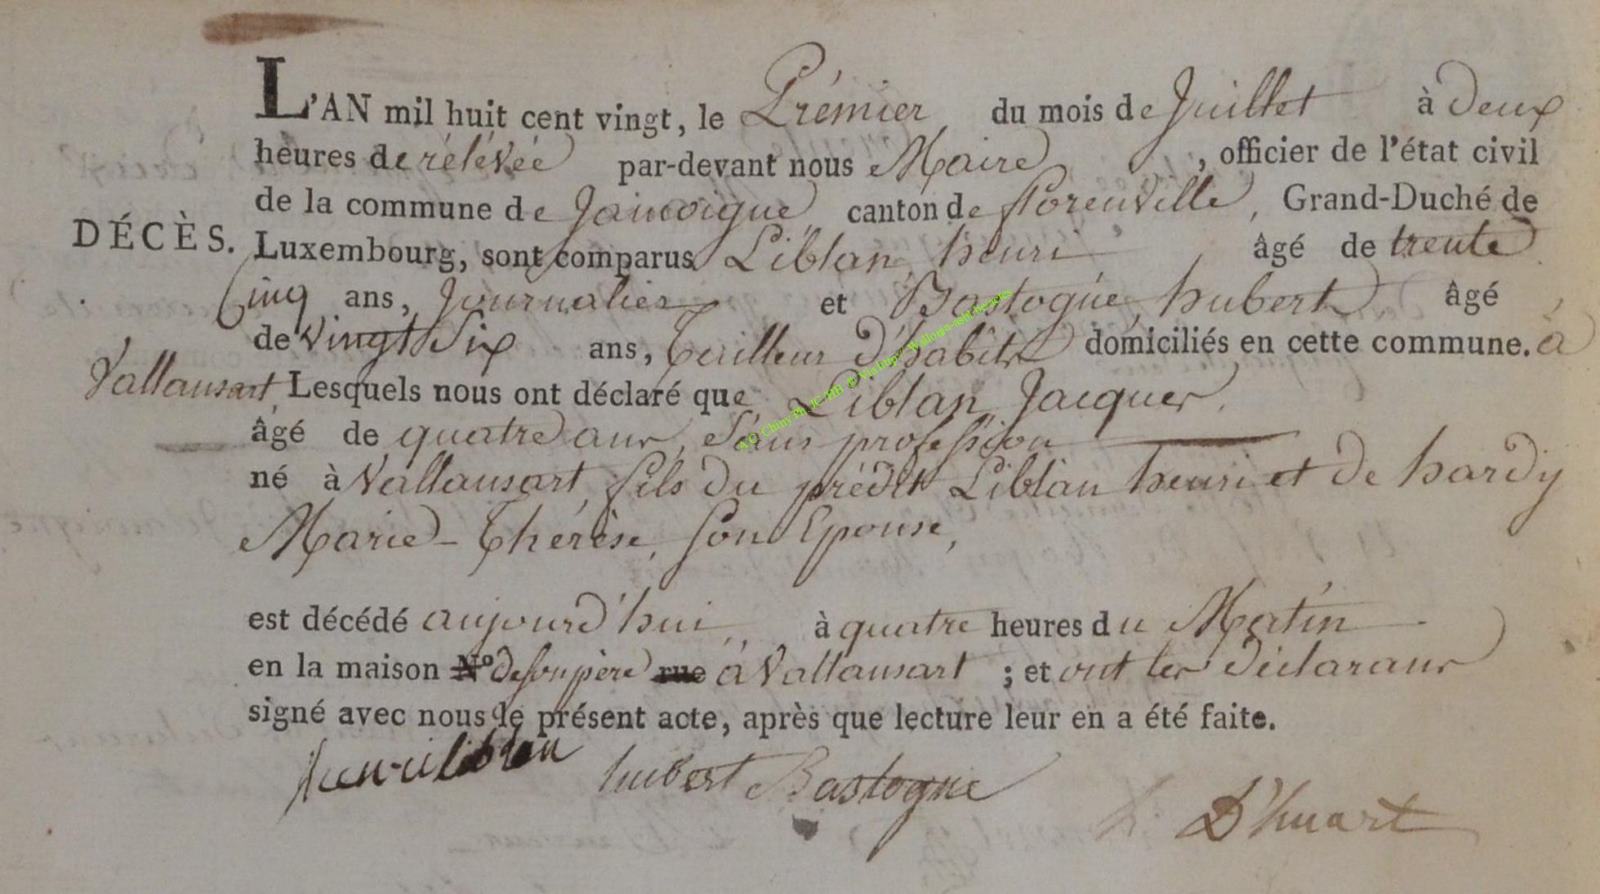 L'AN mil huit cent vingt, le Prémier du mois de Juillet à deux
heures de rélévée par-devant nous Maire, officier de l'état civil
de la commune de Jamoigne canton de florenville, Grand-Duché de
DÉCÈS. Luxembourg, sont comparus Liblan henri âgé de trente
Cinq ans, Journalier et Bastogne, hubert âgé
de vingt Six ans, Tailleur d'habits domiciliés en cette commune. à
Vallansart, Lesquels nous ont déclaré que Liblan Jacques,
âgé de quatre ans, Sans profession
né à Vallansart, fils du prédit Liblan henri et de hardy
Marie-Thérèse, son Epouse,
est décédé aujourd'hui, à quatre heures du Matin
en la maison N° de son père rue à Vallansart ; et ont les déclarans
signé avec nous le présent acte, après que lecture leur en a été faite.
henri liblan hubert Bastogne D'huart